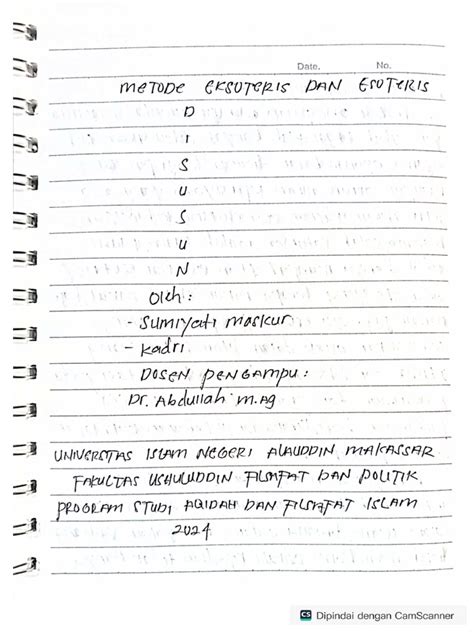 Date. No.
METODE EKSOTERIS DAN ESOTERIS
D
I
S
U
S
U
N
Oleh :
- Sumiyati maskur
- Kadri
DOSEN PENGAMPU :
Dr. Abdullah M.Ag
UNIVERSITAS ISLAM NEGERI ALAUDDIN MAKASSAR
FAKULTAS USHULUDDIN FILSAFAT DAN POLITIK
PROGRAM STUDI AQIDAH DAN FILSAFAT ISLAM
2024
CS Dipindai dengan CamScanner